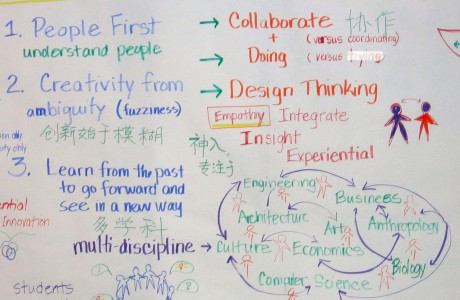 1. People First → Collaborate 协作
understand people
+ (versus coordinating)
→ Doing (versus
2. Creativity from → Design Thinking
ambiguity (fuzziness)
Empathy Integrate
创新始于模糊
神入
Insight
专注于
Experiential
3. Learn from the past
to go forward and
see in a new way
Innovation
多学科
multi-discipline →
Engineering
Business
Architecture
Art
Anthropology
Culture
Economics
Biology
Computer Science
students